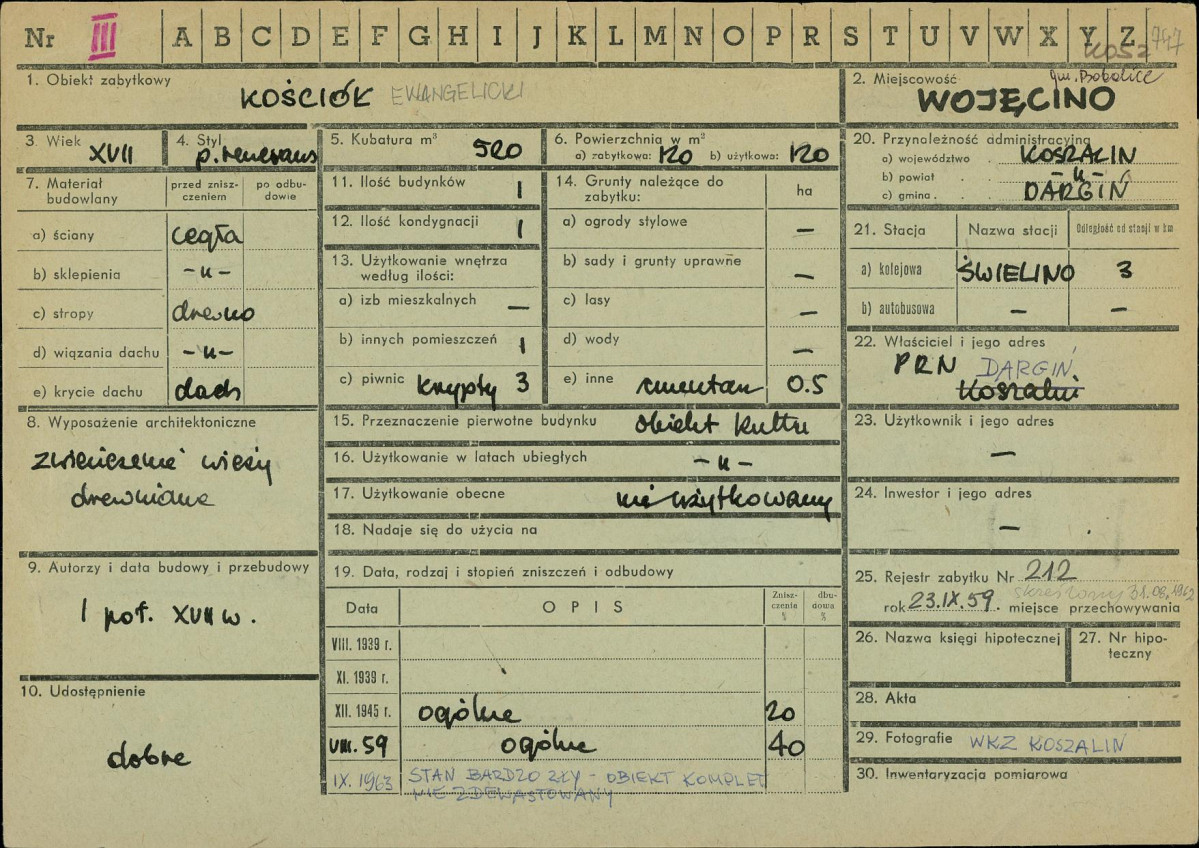 Nr III A B C D E F G H I J K L M N O P R S T U V W X Y Z 747
KOSZ
1. Obiekt zabytkowy
KOŚCIÓŁ EWANGELICKI
2. Miejscowość gm. Bobolice
WOJĘCINO
3. Wiek XVII
4. Styl p. renesans
5. Kubatura m³ 520
6. Powierzchnia w m²
a) zabytkowa: 120 b) użytkowa: 120
7. Materiał budowlany
przed zniszczeniem
po odbudowie
a) ściany cegła
b) sklepienia -u-
c) stropy drewno
d) wiązania dachu -u-
e) krycie dachu dach
8. Wyposażenie architektoniczne
zwieńczenie wieży
drewniane
9. Autorzy i data budowy i przebudowy
I poł. XVII w.
10. Udostępnienie
dobre
11. Ilość budynków 1
12. Ilość kondygnacji 1
13. Użytkowanie wnętrza
według ilości:
a) izb mieszkalnych —
b) innych pomieszczeń 1
c) piwnic krypty 3
14. Grunty należące do
zabytku: ha
a) ogrody stylowe —
b) sady i grunty uprawne —
c) lasy —
d) wody —
e) inne cmentarz 0.5
15. Przeznaczenie pierwotne budynku obiekt kultu
16. Użytkowanie w latach ubiegłych -u-
17. Użytkowanie obecne nie użytkowany
18. Nadaje się do użycia na
19. Data, rodzaj i stopień zniszczeń i odbudowy
Data OPIS Zniszczenia % dbudowa %
VIII. 1939 r.
XI. 1939 r.
XII. 1945 r. ogólne 20
VIII. 59 ogólne 40
IX. 1963 STAN BARDZO ZŁY - OBIEKT KOMPLET
NIE ZDEWASTOWANY
20. Przynależność administracyjna
a) województwo KOSZALIN
b) powiat -u-
c) gmina DARGIŃ
21. Stacja Nazwa stacji Odległość od stacji w km
a) kolejowa ŚWIELINO 3
b) autobusowa — —
22. Właściciel i jego adres
PRN DARGIŃ
Koszalin
23. Użytkownik i jego adres
—
24. Inwestor i jego adres
—
25. Rejestr zabytku Nr 212
skreślony 31.08.1962
rok 23.IX.59. miejsce przechowywania
26. Nazwa księgi hipotecznej
27. Nr hipoteczny
28. Akta
29. Fotografie WKZ KOSZALIN
30. Inwentaryzacja pomiarowa